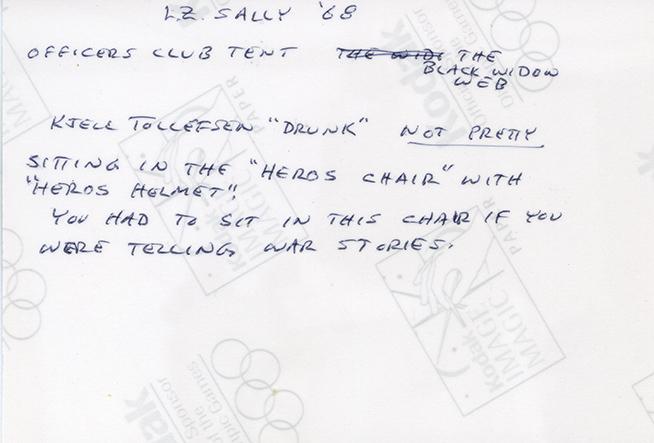 L.Z. SALLY '68
OFFICERS CLUB TENT THE WIDS THE
BLACK WIDOW
WEB
KJELL TOLLEFSEN "DRUNK" NOT PRETTY
SITTING IN THE "HEROS CHAIR" WITH
"HEROS HELMET".
YOU HAD TO SIT IN THIS CHAIR IF YOU
WERE TELLING WAR STORIES.
Kodak
Sponsor
of the
Olympic Games
Kodak
IMAGE
MAGIC
PAPER